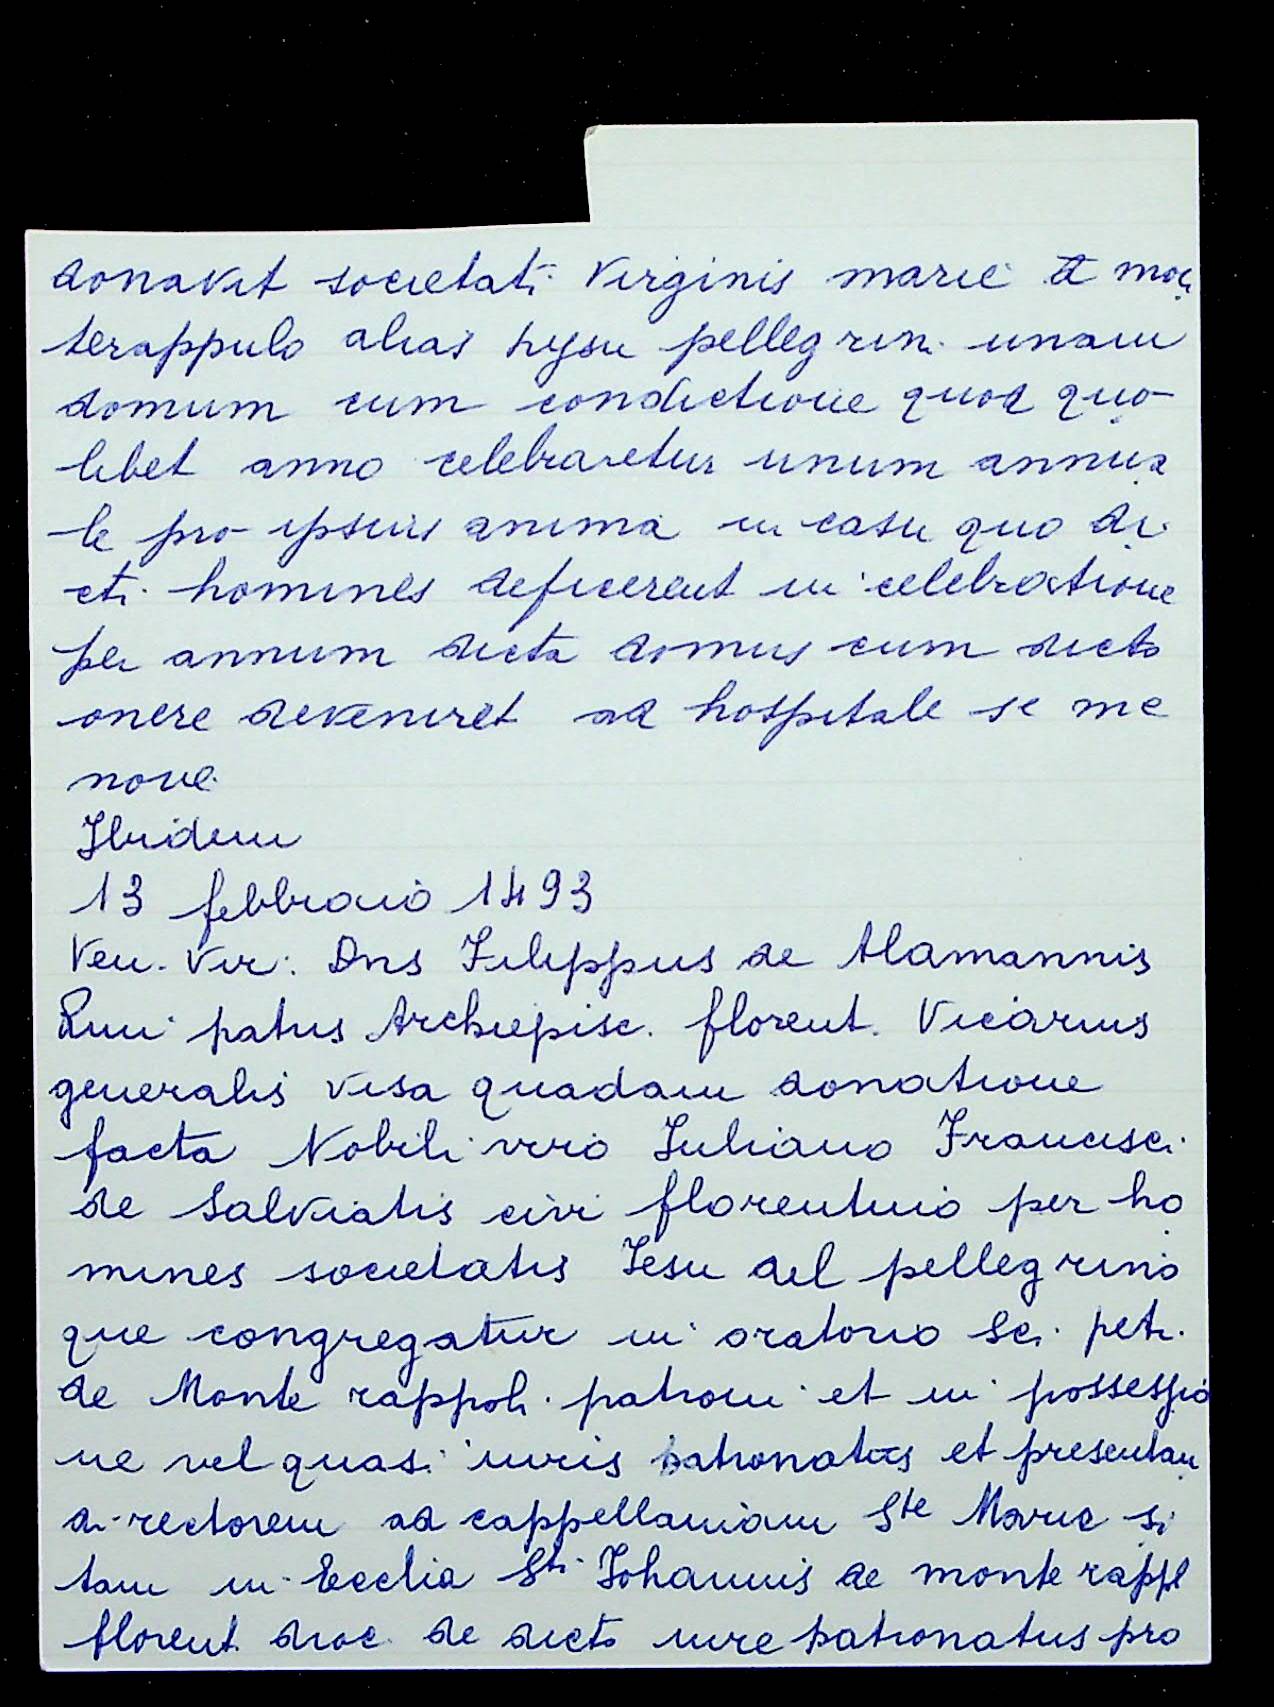 donavit societati Virginis marie et mon
terappulo alias hysu pellegrini unam
domum cum condictione quod quo
libet anno celebraretur unum annua
le pro ipsius anima in casu quo di
cti homines deficerent in celebratione
per annum dicta domus cum dicto
onere deveniret ad hospitale se me
nove
Ibidem
13 febbraio 1493
Ven. Vir. Dns Filippus de Alamannis
patus Archiepisc. florent. Vicarius
generalis visa quadam donatione
facta Nobili viro Juliano Francisci
de Salviatis civi florentino per ho
mines societatis Jesu del pellegrino
que congregatur in oratorio Sci. petri
de Monte rappoli patroni et in possessio
ne vel quasi iuris patronatus et presentan
di rectorem ad cappellaniam Ste Marie si
tam in Ecclia Sti Johannis de monte rappl
florent. dioc. de dicto iure patronatus pro